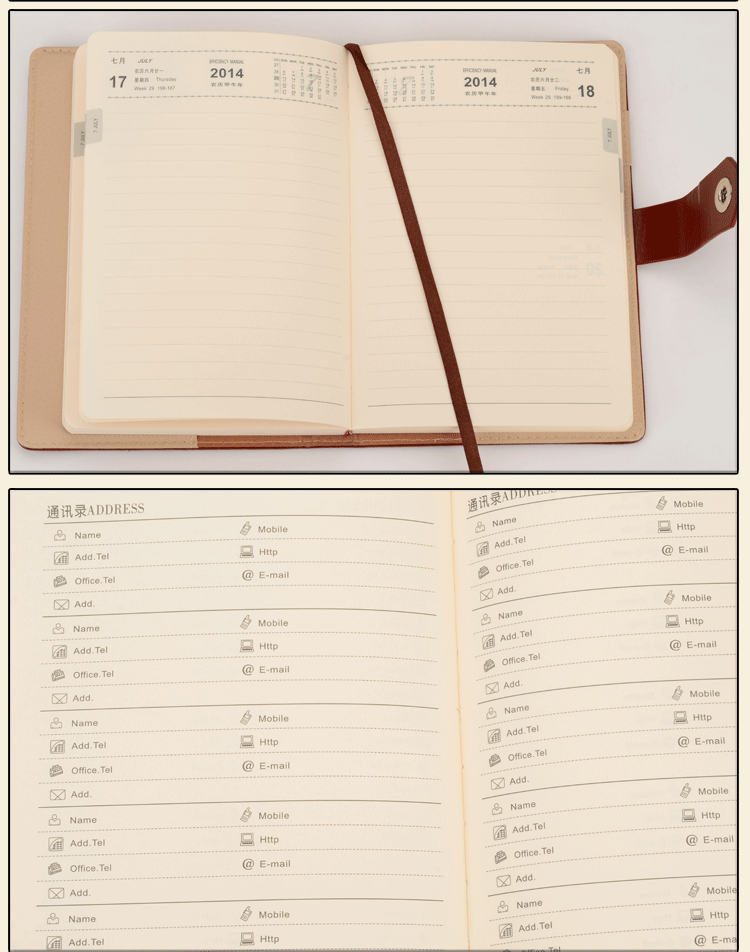 七月 JULY
17 农历六月廿一
星期四 Thursday
Week 29 198-167
EFFICIENCY MANUAL
2014
农历甲午年
7 JULY
7 JULY
EFFICIENCY MANUAL
2014
农历甲午年
JULY 七月
农历六月廿二
星期五 Friday 18
Week 29 199-166
7 JULY
通讯录ADDRESS
Name Mobile
Add.Tel Http
Office.Tel @ E-mail
Add.
Name Mobile
Add.Tel Http
Office.Tel @ E-mail
Add.
Name Mobile
Add.Tel Http
Office.Tel @ E-mail
Add.
Name Mobile
Add.Tel Http
Office.Tel @ E-mail
Add.
Name Mobile
Add.Tel Http
通讯录ADDRESS
Name Mobile
Add.Tel Http
Office.Tel @ E-mail
Add.
Name Mobile
Add.Tel Http
Office.Tel @ E-mail
Add.
Name Mobile
Add.Tel Http
Office.Tel @ E-mail
Add.
Name Mobile
Add.Tel Http
Office.Tel @ E-mail
Add.
Name Mobile
Add.Tel Http
Office.Tel @ E-ma